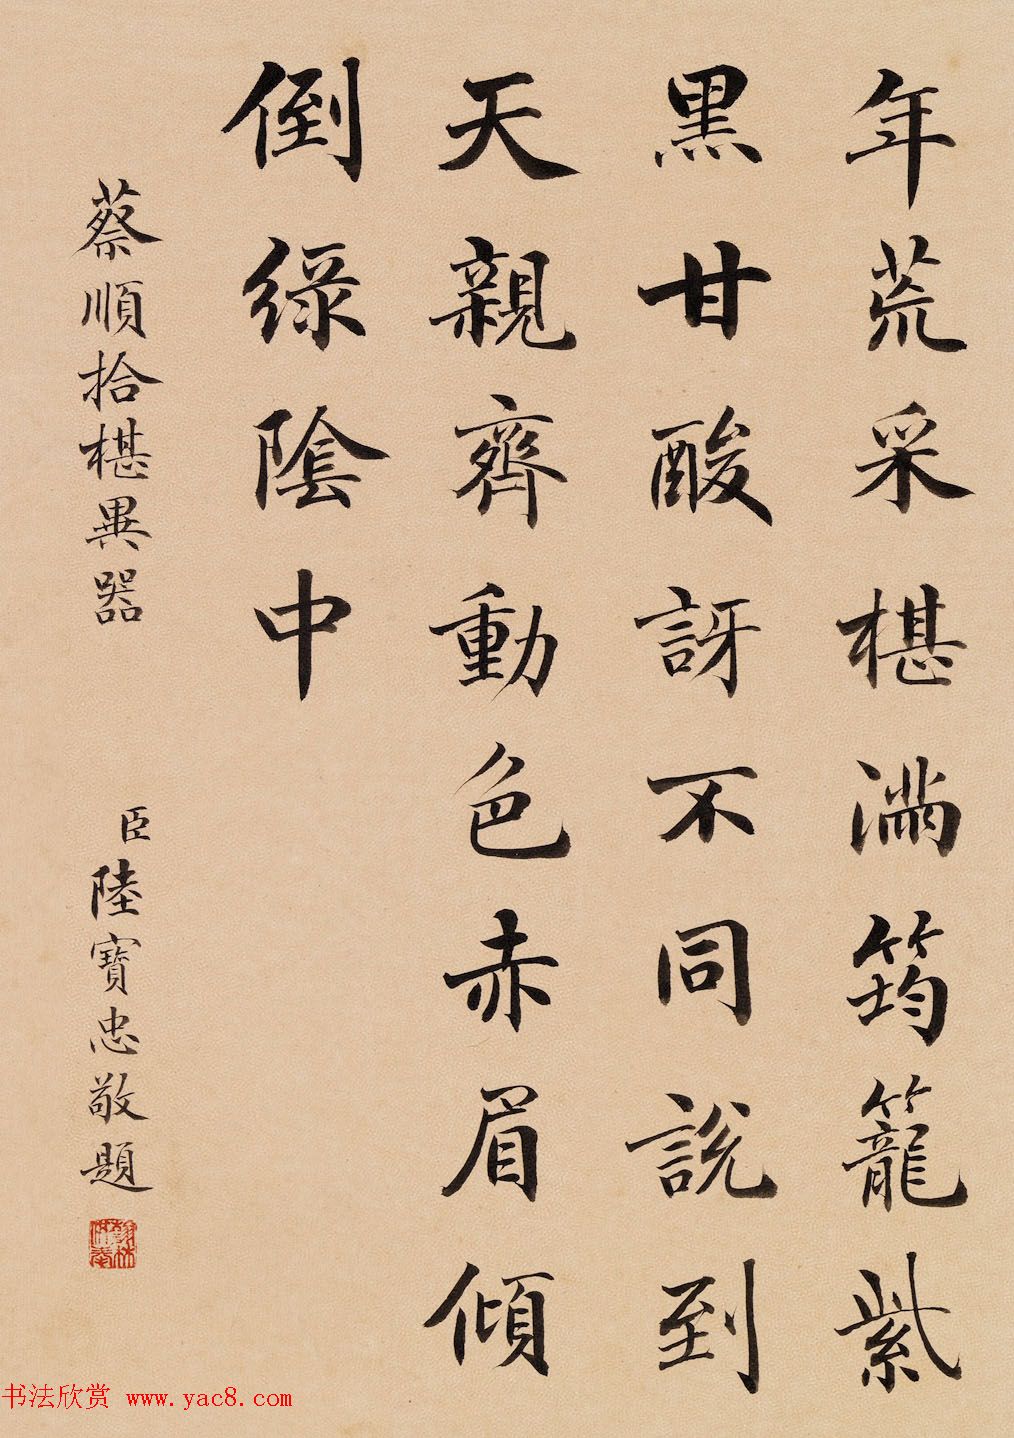 年荒采椹滿筠籠紫
黑甘酸訝不同說到
天親齊動色赤眉傾
倒綠陰中
蔡順拾椹異器
臣陸寶忠敬題
翰林供奉
书法欣赏 www.yac8.com